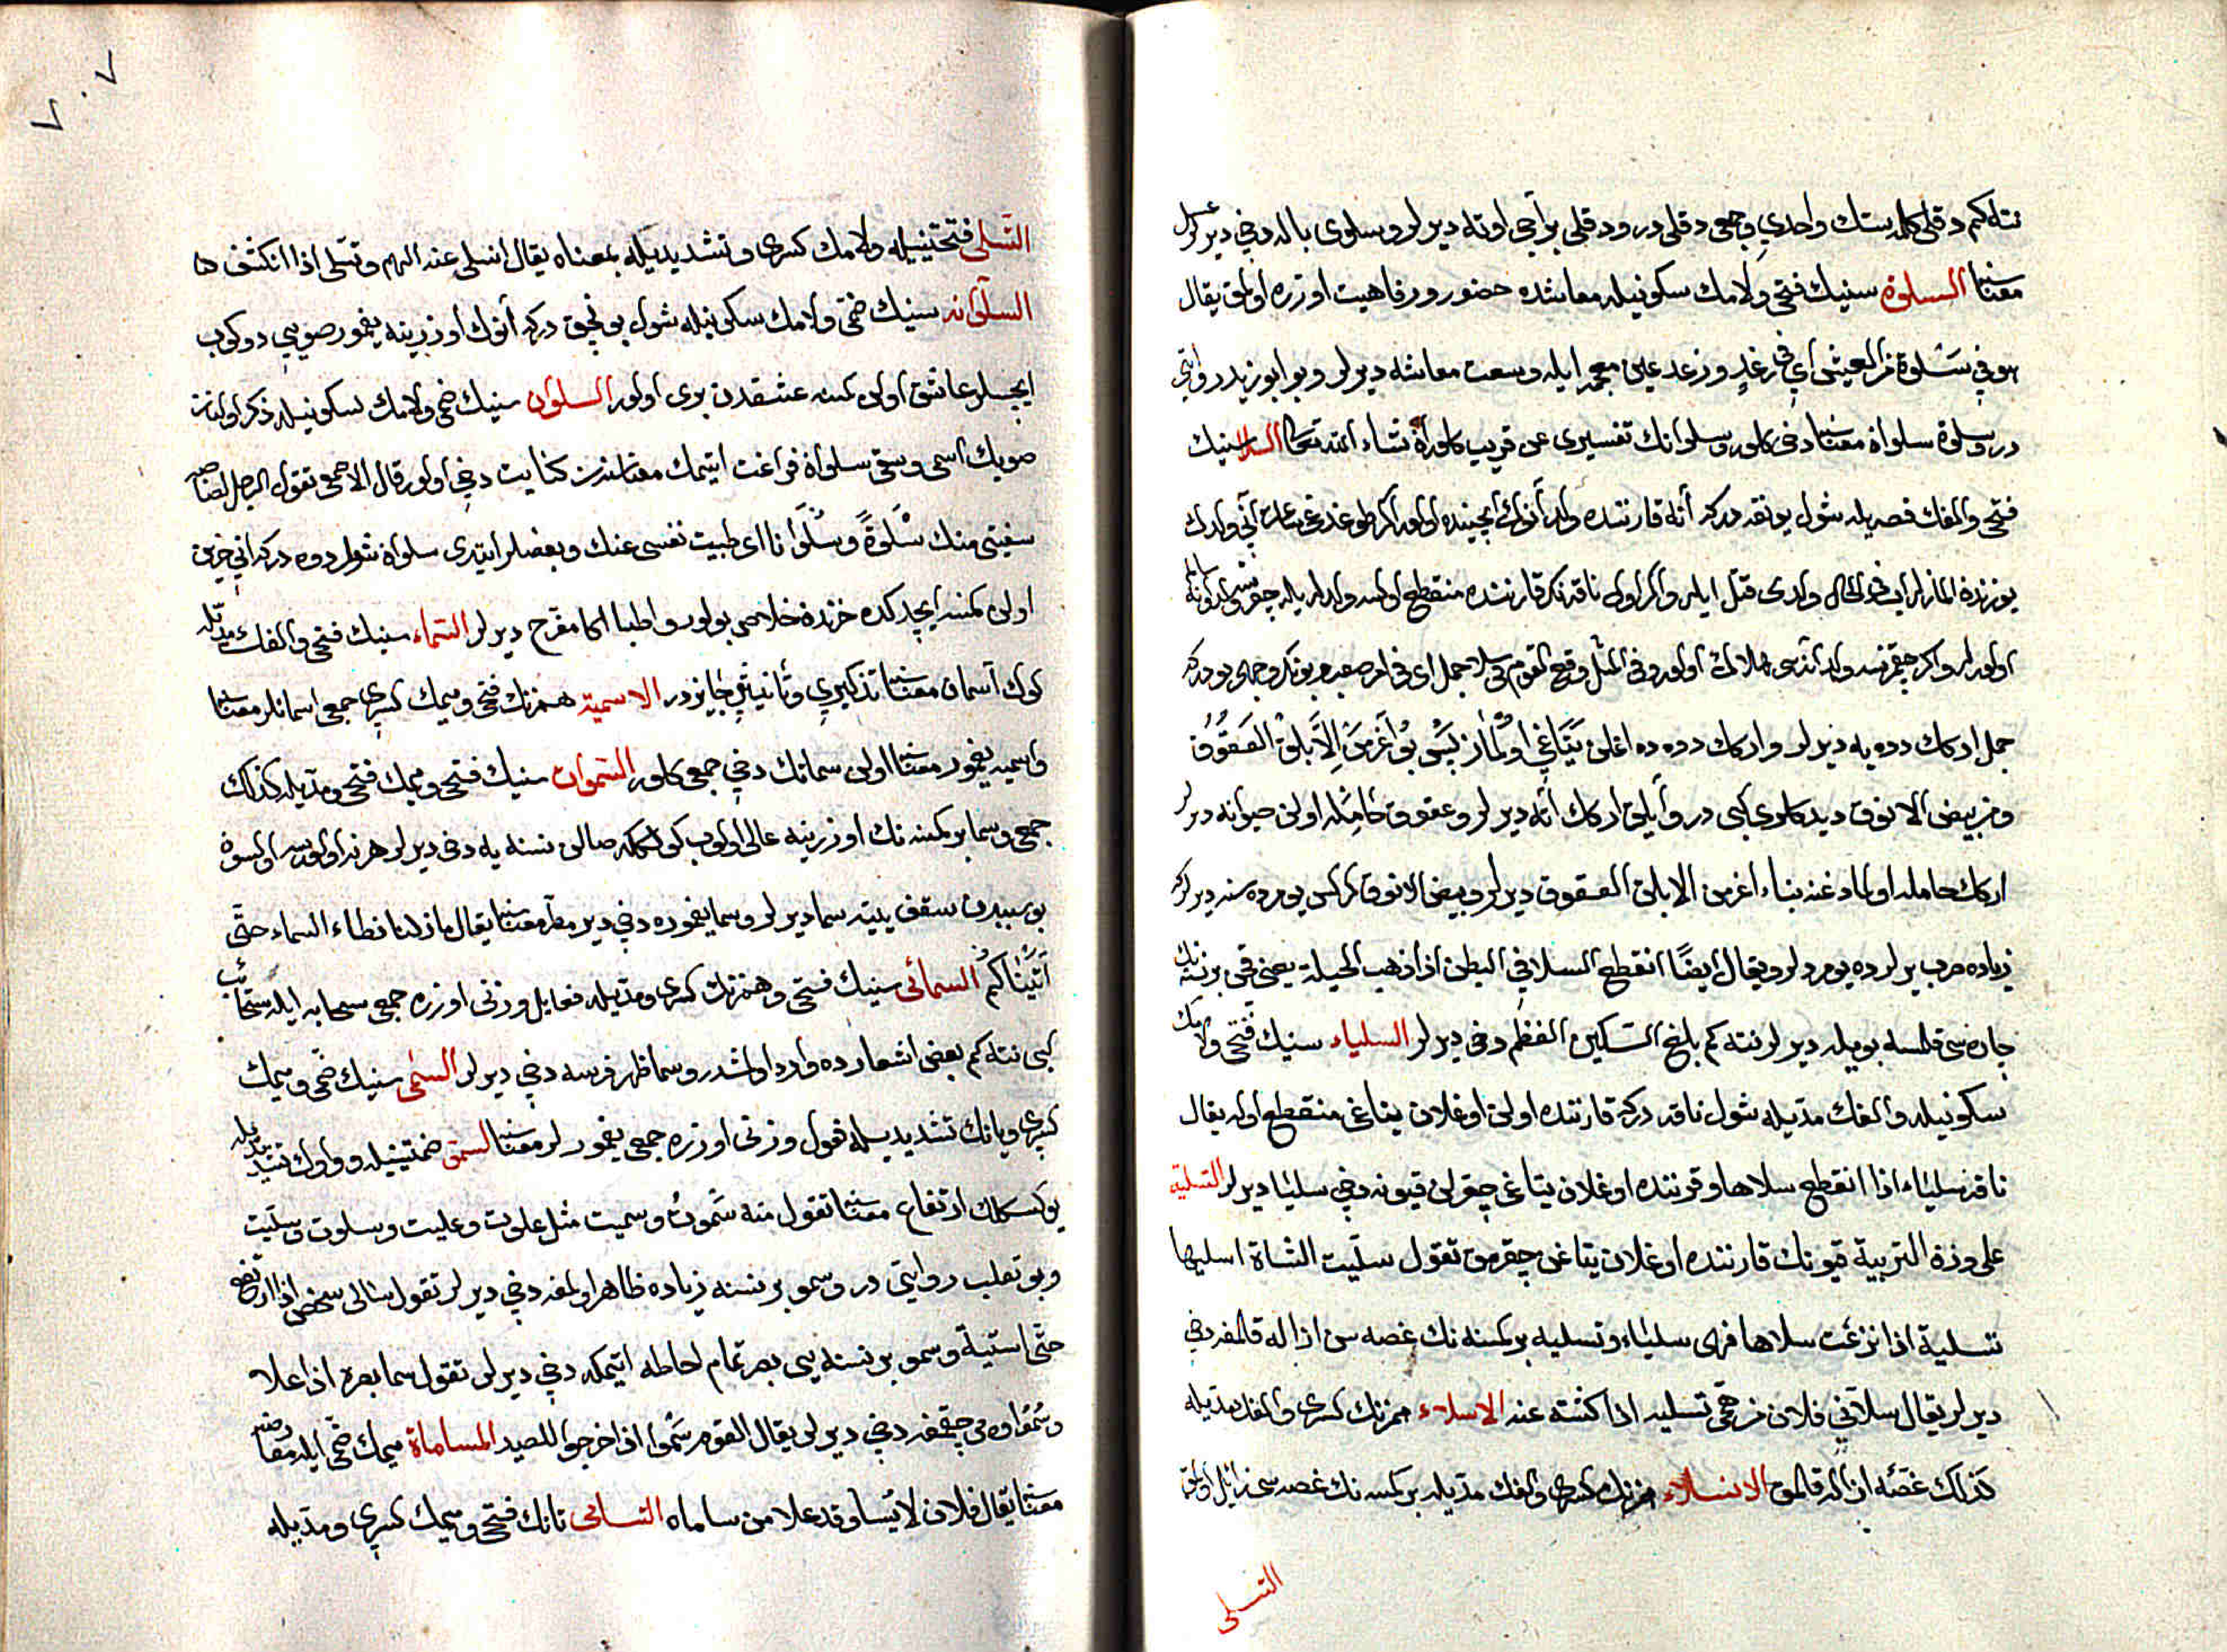 نته كم دقلى كلمه سنك واحدي وجمعى دقلى در ودقلى بر آجى اوته ديرلر وسلوى بالده دخي ديرلر عسل
معناسنا السلوة سنيك فتحى ولامك سكونيله معاشده حضور ورفاهيت اوزره اولمق يقال
هو في سلوة من العيش اي في رغد ورغد عين معجمه ايله وسعت معاشه ديرلر وبو ابو زيد روايتي
در وسلوة سلواة معناسنا دخى كلور وسلوانك تفسيرى عن قريب كلور ان شاء الله تعالى السلا سنيك
فتحى والفك قصريله شول يوفقه ديركه آنه قارننده ولد آنوك ايچنده اولور اكر طوغدغى ساعت آنى ولدك
يوزندن المازلر ايسه في الحال ولدى قتل ايلر واكر اول ناقه نك قارننده منقطع اولسه ولدله بيله چقرسه
اولورلر واكر چقمزسه ولد آنده هلاك اولور وفي المثل وقع القوم في سلا جمل اى في امر صعب بونك وجهى بودركه
جمل اركك دوه يه ديرلر واركك دوه ده اغلن يتاغي اولماز
ومن بيض الانوق ديدكلرى كبى در وأبلق اركك آته ديرلر وعقوق حامله اولن حيوانه ديرلر
اركك حامله اولمادغنه بناء اعز من الابلق العقوق ديرلر وبيض الانوق كركس يمورده سنه ديرلركه
زياده صرب يرلرده يومردلر ويقال ايضًا انقطع السلا في البطن اذا ذهب الحيلة يعنى قچن بر نسنه نك
چاره سى قلمسه بويله ديرلر نته كم بلغ السكين العظم دخى ديرلر السلياء سنيك فتحى ولامك
سكونيله والفك مديله شول ناقه دركه قارننده اولن اوغلان يتاغى منقطع اوله يقال
ناقة سلياء اذا انقطع سلاها وقرننده اوغلان يتاغى چقرلن قيونه دخي سليا ديرلر التسلية
على وزن التربية قيونك قارننده اوغلان يتاغن چقرمق تقول سليت الشاة اسليها
تسلية اذا نزعت سلاها فهى سلياء وتسليه بر كمسنه نك غصه سن ازاله قلمغه دخي
ديرلر يقال سلاني فلان من همّي تسليه اذا كشفه عنه الاسلاء همزنك كسرى والفك مديله
كذلك غصّه ازاله قلمق الانسلاء همزنك كسرى والفك مديله بر كمسه نك غصه سى زائل اولمق
التسلى
التسلى فتحتينيله ولامك كسرى وتشديديله بمعناه يقال انسلى عنه الهم وتسلى اذا انكشف
السلوانه سنيك ضمّى ولامك سكونيله شول بونجق دركه آنوك اوزرينه يغمور صويى دوكوب
ايچسلر عاشق اولن كمسنه عشقدن برى اولور السلوان سنيك ضمى ولامك سكونيله ذكر اولنان
صويك اسمى وسقى سلواة فراغت ايتمك معناسندن كنايت دخي اولور قال الاصمعى تقول الرجل لصاحبه
سقيتى منك سلوةً وسلوانا اى طيبت نفسى عنك وبعضلر ايتدى سلواة شول دوه دركه انى حزين
اولن كمسنه ايچدكده حزنده خلاص بولور واطبا اكا مفرح ديرلر السماء سنيك فتحى والفك مديله
كوك آسمان معناسنا تذكيري وتأنيثي جايزدر الاسمية همزنك فتحى وميمك كسرى جمعى اسمانلر معناسنا
واسميه يغمور معناسنا اولن سمانك دخي جمعى كلور السموات سنيك فتحى وميمك فتحى ومديله كذلك
جمعى وسما بر كمسنه نك اوزرينه عالى اولوب كولكه صالن نسنه يه دخى ديرلر هر نه اولورسه اولسون
بو سببدن سقف بيته سما ديرلر وسما يغموره دخي ديرلر مطر معناسنا يقال ما زلنا نطاء السماء حتّى
أتيناكم السمائى سنيك فتحى وهمزنك كسرى ومديله فعايل وزنى اوزره جمعى سحابه ايله سحائب
كبى نته كم بعض اشعارده وارد اولمشدر وسما ظهر فرسه دخي ديرلر السمى سنيك ضمّى وميمك
كسرى ويانك تشديديله فعول وزنى اوزره جمعى يغمورلر معناسنا السمو ضمتينيله وواوك تشديديله
يوكسكلك ارتفاع معناسنا تقول منه سموت وسميت مثل علوت وعليت وسلوت وسليت
وبو ثعلب روايتى در وسمو بر نسنه زياده ظاهر اولمغه دخي ديرلر تقول سما لى شخص اذا ارتفع
حتّى استبنته وسمو بر نسنه يى بصر تمام احاطه ايتمكه دخي ديرلر تقول سما بصره اذا علا
وسمو اوه چقمغه دخي ديرلر يقال القوم سموا اذا خرجوا للصيد المساماة ميمك ضمّى ايله
معناسنا يقال فلان لا يسامى وقد علا من ساماه التسامى تانك فتحى وميمك كسرى ومديله